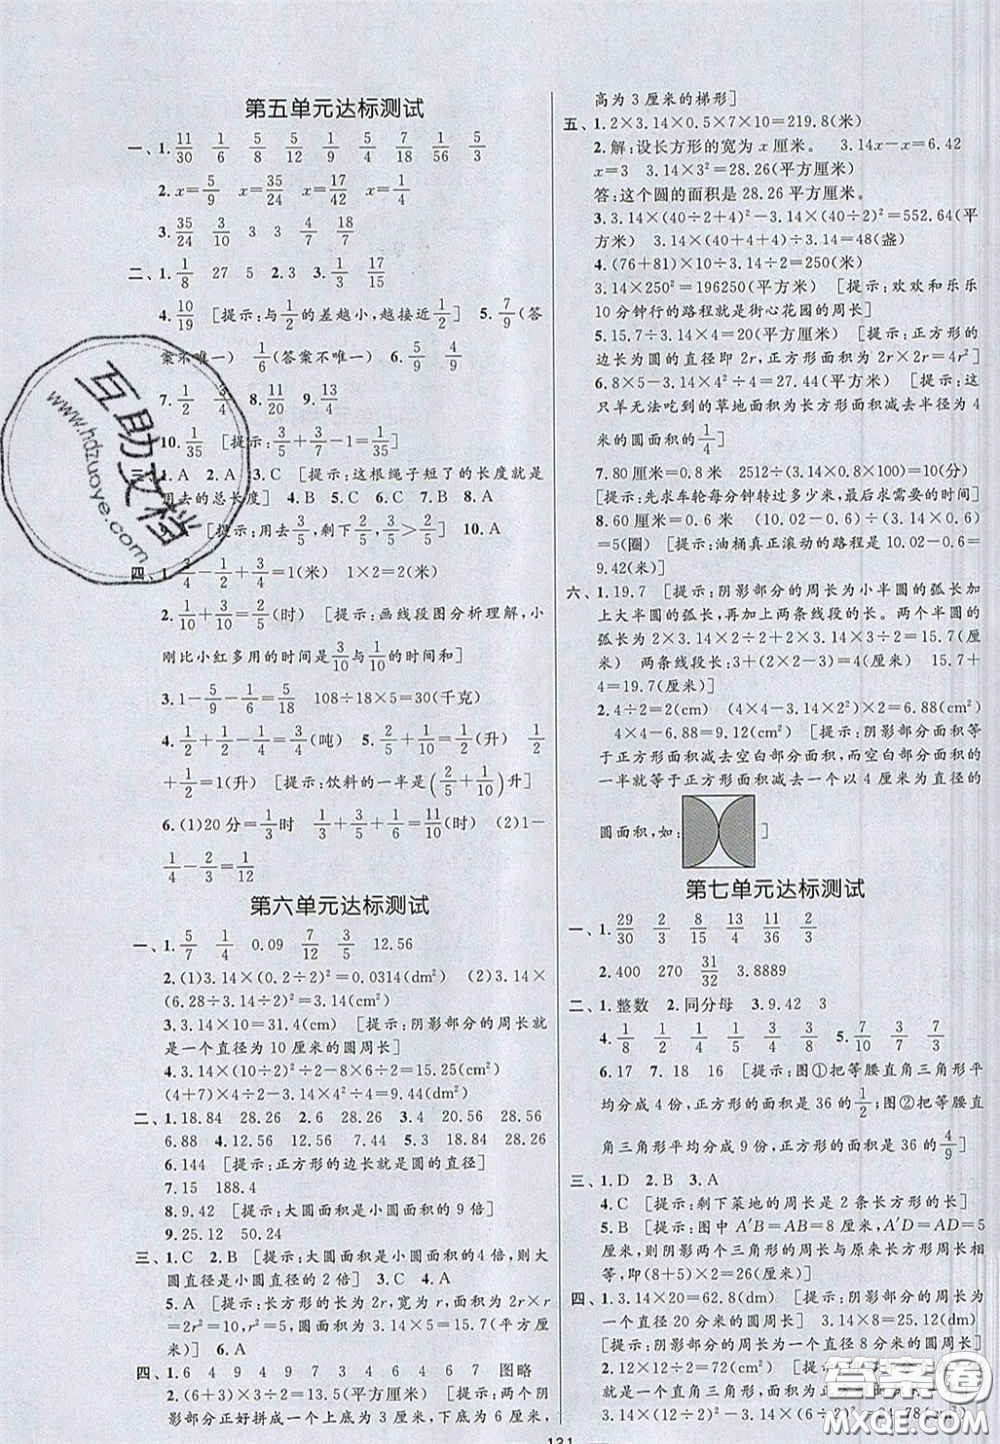 第五单元达标测试
一、1. 11/30 1/6 5/8 5/12 1/9 5/4 7/18 1/56 5/3
2. x=5/9 x=35/24 x=17/42 x=1/4
3. 35/24 3/10 3 3 4/7 13/18
二、1. 1/8 27 5 2.3 3. 1/3 17/15
4. 10/19 [提示:与1/2的差越小,越接近1/2] 5. 7/9(答
案不唯一) 1/6(答案不唯一) 6. 5/9
7. 1/2 3/4 8. 11/20 9. 13/4
10. 1/35 [提示:3/5+3/5-1=1/5]
1.A 2.A 3.C [提示:这根绳子短了的长度就是
用去的总长度] 4.B 5.C 6.B 7.C 8.A
[提示:用去3/5,剩下2/5,3/5>2/5] 10.A
四、1. 3/4-1/2+3/4=1(米) 1×2=2(米)
2. 1/10+3/10=2/5(时) [提示:画线段图分析理解,小
刚比小红多用的时间是3/10与1/10的时间和]
3.1-5/9-1/6=5/18 108÷18×5=30(千克)
6.(1)20分=1/3时 1/3+1/3+1/6=11/10(时) (2)1-
1/4-2/3=1/12
第六单元达标测试
一、1. 5/7 1/4 0.09 7/12 3/5 12.56
2.(1)3.14×(0.2÷2)²=0.0314(dm²) (2)3.14×
(6.28÷3.14÷2)²=3.14(cm²)
3.3.14×10=31.4(cm) [提示:阴影部分的周长就
是一个直径为10厘米的圆周长]
4.3.14×(10÷2)²-3.14×(8÷2)²=28.26(cm²)
(4+7)×4÷2-3.14×4²÷4=9.44(cm²)
二、1.18.84 28.26 2.6 28.26 3.4 20.56 28.56
6.88 4.12.56 12.56 7.44 5.3 18.84 28.26
6.144 [提示:正方形的边长就是圆的直径]
7.15 188.4
8.9.42 [提示:大圆面积是小圆面积的9倍]
9.25.12 50.24
三、1.C 2.B [提示:大圆面积是小圆面积的4倍,则大
圆直径是小圆直径的2倍] 3.C 4.A
5.A [提示:长方形的长为2r,宽为r,面积为2r×r
=2r²=10,r²=5,圆面积为3.14×5=15.7(平方厘
米)] 6.A
四、1.6 4 9 4 9 7 3 4 6 4 6 7 图略
2.(6+3)×3÷2=13.5(平方厘米) [提示:两个阴
影部分正好拼成一个上底为3厘米,下底为6厘米,
高为3厘米的梯形]
五、1.2×3.14×0.5×7×10=219.8(米)
2.解:设长方形的宽为x厘米。 3.14x-x=6.42
x=3 3.14×3²=28.26(平方厘米)
答:这个圆的面积是28.26平方厘米。
3.3.14×(40÷2+4)²-3.14×(40÷2)²=552.64(平
方米) 3.14×(40+4+4)÷3.14=48(盏)
4.(76+81)×10÷3.14÷2=250(米)
3.14×250²=196250(平方米) [提示:欢欢和乐乐
10分钟行的路程就是街心花园的周长]
5.15.7÷3.14×4=20(平方厘米) [提示:正方形的
边长为圆的直径即2r,正方形面积为2r×2r=4r²]
6.8×5-3.14×4²÷4=27.44(平方米) [提示:这
只羊无法吃到的草地面积为长方形面积减去半径为4
米的圆面积的1/4]
7.80厘米=0.8米 2512÷(3.14×0.8×100)=10(分)
[提示:先求车轮每分钟转过多少米,最后求需要的时间]
8.60厘米=0.6米 (10.02-0.6)÷(3.14×0.6)
=5(圈) [提示:油桶真正滚动的路程是10.02-0.6=
9.42(米)]
六、1.19.7 [提示:阴影部分的周长为小半圆的弧长加
上大半圆的弧长,再加上两条线段的长。两个半圆的
弧长为2×3.14×2÷2+2×3.14×3÷2=15.7(厘
米) 两条线段长:3+(2×3-2×2-1)=4(厘米) 15.7+4
=19.7(厘米)]
2.4÷2=2(cm) (4×4-3.14×2²)×2=6.88(cm²)
4×4-6.88=9.12(cm²) [提示:阴影部分面积等
于正方形面积减去空白部分面积,而空白部分面积的
一半就等于正方形面积减去一个以4厘米为直径的
圆面积,如: ]
第七单元达标测试
一、1. 29/30 2/3 8/15 13/4 11/36 2/3
2.400 270 31/32 3.8889
二、1.整数 2.同分母 3.9.42 3
4. 1/8 1/2 1/4 3/8 3/4 5. 7/10 3/7 7/3
6.17 7.18 16 [提示:图①把等腰直角三角形平
均分成4份,正方形的面积是36的1/2;图②把等腰直
角三角形平均分成9份,正方形的面积是36的4/9]
三、1.D 2.B 3.A
4.C [提示:剩下菜地的周长是2条长方形的长]
5.B [提示:图中A′B=AB=8厘米,A′D=AD=5
厘米,则阴影两个三角形的周长与原来长方形周长相
等,即(8+5)×2=26(厘米)]
四、1.3.14×20=62.8(dm) [提示:阴影部分的周长为
一个直径为20分米的圆周长] 3.14×8=25.12(dm)
[提示:阴影部分的周长为一个直径为8分米的圆周长]
2.12×12÷2=72(cm²)
部分是一个直角三角形]
3.14×(12÷2)²÷
131
互助文档
www.hdzuoye.com
答案圈
MXQE.COM